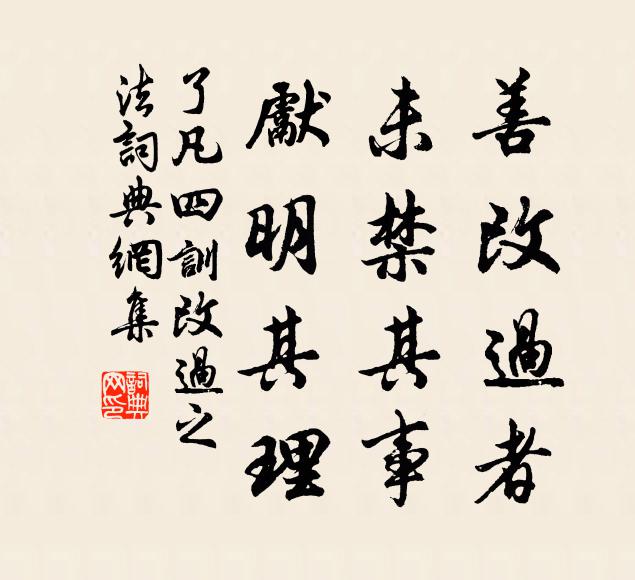 善改過者
未禁其事
獻明其理
了凡四訓改過之
法詞典網集
詞典
网印